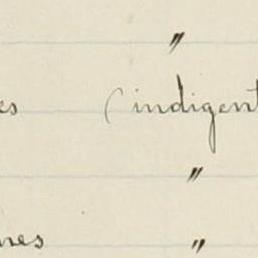 "
es (indigent
"
nes "